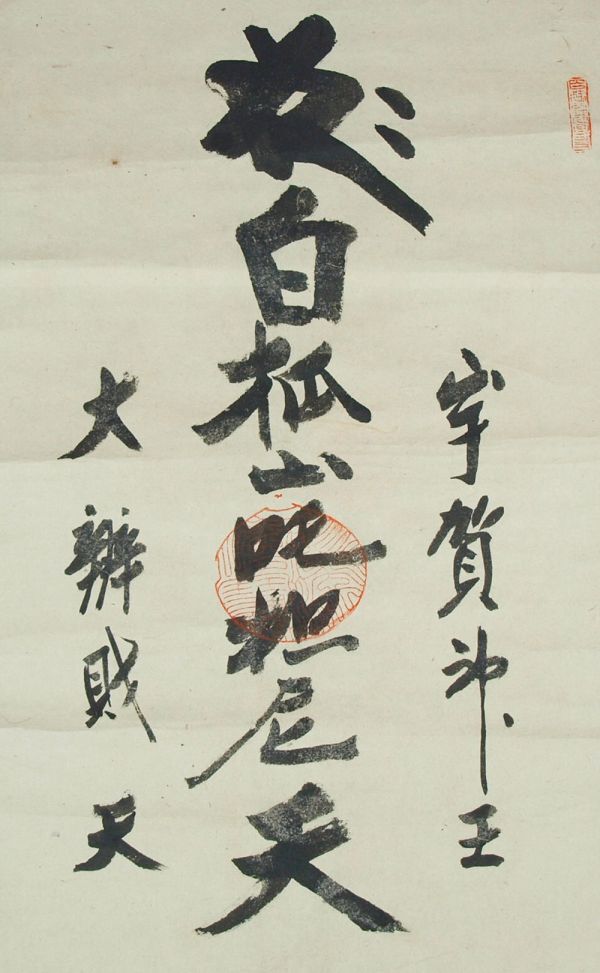 宇賀神王
白狐山吒枳尼天
大辨財天